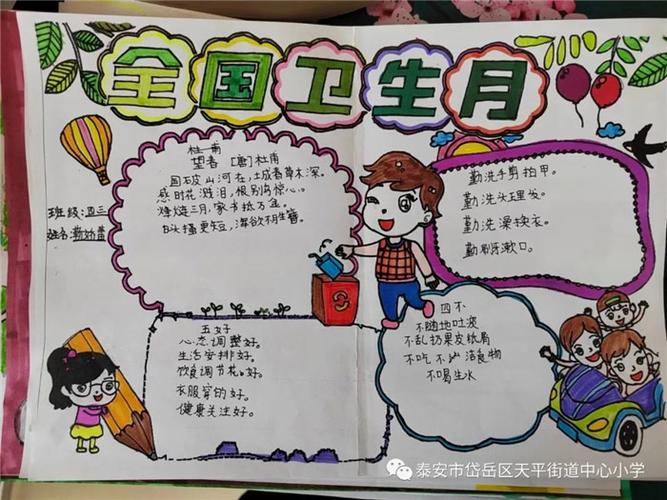 全国卫生月
班级:四三
杜甫
望春 [唐]杜甫
国破山河在,土成春草木深。
感时花溅泪,恨别鸟惊心。
烽烧三月,家书抵万金。
白头搔更短,浑欲不胜簪
勤洗手剪指甲。
勤洗头理发。
勤洗澡换衣。
勤刷牙漱口。
五好
心态调整好。
生活安排好。
饮食调节好。
衣服穿的好。
健康关注好。
四不
不随地吐痰
不乱扔果皮纸屑
不吃不洁食物
不喝生水
泰安市岱岳区天平街道中心小学